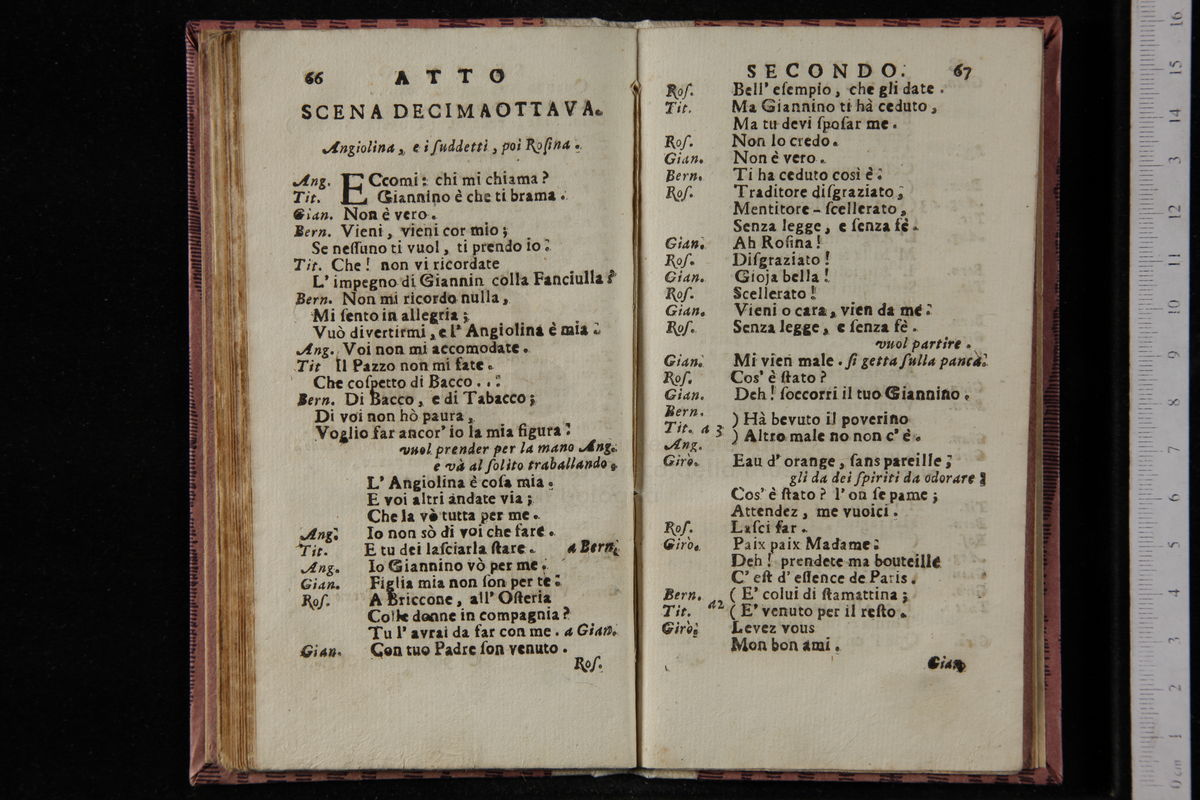 66 ATTO
SCENA DECIMAOTTAVA.
Angiolina, e i ſuddetti, poi Roſina.
Ang. ECcomi: chi mi chiama?
Tit. Giannino è che ti brama.
Gian. Non è vero.
Bern. Vieni, vieni cor mio;
Se neſſuno ti vuol, ti prendo io:
Tit. Che! non vi ricordate
L' impegno di Giannin colla Fanciulla?
Bern. Non mi ricordo nulla,
Mi ſento in allegria;
Vuò divertirmi, e l' Angiolina è mia:
Ang. Voi non mi accomodate.
Tit Il Pazzo non mi fate.
Che coſpetto di Bacco...
Bern. Di Bacco, e di Tabacco;
Di voi non hò paura,
Voglio far ancor' io la mia figura:
vuol prender per la mano Ang.
e và al ſolito traballando.
L' Angiolina è coſa mia.
E voi altri andate via;
Che la vò tutta per me.
Ang. Io non sò di voi che fare.
Tit. E tu dei laſciarla ſtare. a Bern.
Ang. Io Giannino vò per me.
Gian. Figlia mia non ſon per te:
Roſ. A Briccone, all' Oſteria
Colle donne in compagnia?
Tu l' avrai da far con me. a Gian.
Gian. Con tuo Padre ſon venuto.
Roſ.
SECONDO. 67
Roſ. Bell' eſempio, che gli date.
Tit. Ma Giannino ti hà ceduto,
Ma tu devi ſpoſar me.
Roſ. Non lo credo.
Gian. Non è vero.
Bern. Ti ha ceduto così è:
Roſ. Traditore diſgraziato,
Mentitore - ſcellerato,
Senza legge, e ſenza fè.
Gian. Ah Roſina!
Roſ. Diſgraziato!
Gian. Gioja bella!
Roſ. Scellerato!
Gian. Vieni o cara, vien da me:
Roſ. Senza legge, e ſenza fè.
vuol partire.
Gian. Mi vien male. ſi getta ſulla panca.
Roſ. Cos' è ſtato?
Gian. Deh! ſoccorri il tuo Giannino.
Bern.
Tit. a 3 ) Hà bevuto il poverino
Ang. ) Altro male no non c' è.
Girò. Eau d' orange, ſans pareille;
gli da dei ſpiriti da odorare
Cos' è ſtato? l' on ſe pame;
Attendez, me vuoici.
Roſ. Laſci far.
Girò. Paix paix Madame:
Deh! prendete ma bouteille
C' eſt d' eſſence de Paris.
Bern. ( E' colui di ſtamattina;
Tit. a2 ( E' venuto per il reſto.
Girò. Levez vous
Mon bon ami.
Gian